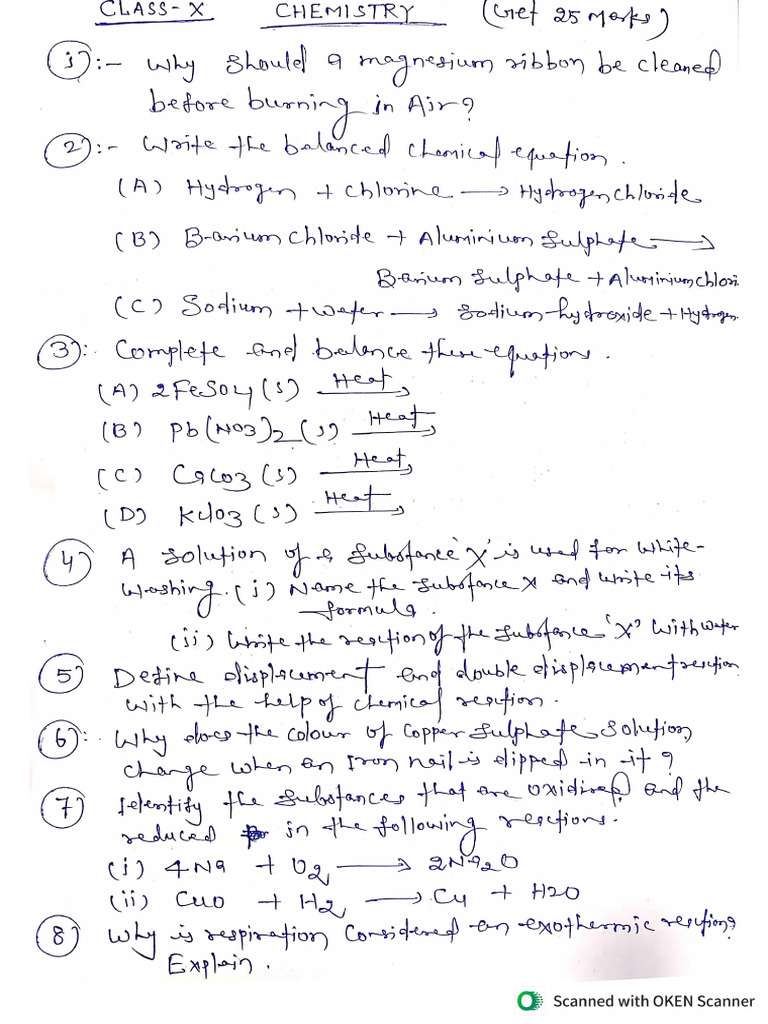 CLASS-X CHEMISTRY (Get 25 Marks)
1):- Why should a magnesium ribbon be cleaned
before burning in Air?
2):- Write the balanced chemical equation.
(A) Hydrogen + Chlorine → Hydrogen chloride
(B) Barium Chloride + Aluminium Sulphate →
Barium Sulphate + Aluminium Chlori
(C) Sodium + Water → Sodium hydroxide + Hydrogen
3): Complete and balance these equations.
(A) 2FeSO4 (s) Heat→
(B) Pb(NO3)2 (s) Heat→
(C) CaCO3 (s) Heat→
(D) KClO3 (s) Heat→
4) A solution of a substance 'X' is used for white-
washing. (i) Name the substance X and write its
formula.
(ii) Write the reaction of the substance 'X' with water
5) Define displacement and double displacement reaction
with the help of chemical reaction.
6): Why does the colour of Copper Sulphate solution
change when an Iron nail is dipped in it?
7) Identify the substances that are oxidised and the
reduced in the following reactions.
(i) 4Na + O2 → 2Na2O
(ii) CuO + H2 → Cu + H2O
8) Why is respiration Considered an exothermic reaction?
Explain.
Scanned with OKEN Scanner